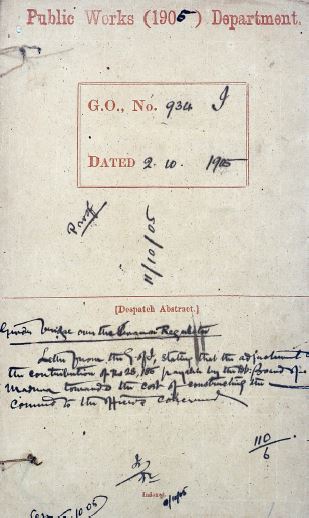 Public Works (1905) Department.
G.O., No. 934 I
DATED 2. 10. 1905
Proof
11/10/05
[Despatch Abstract.]
Girder bridge over the Regulator
Letter from the G of I, stating that the adjustment
the contribution of Rs 25, payable by the Dt. Board of
Madura towards the cost of constructing the
Commd to the officers concerned
110/6
Indexed.